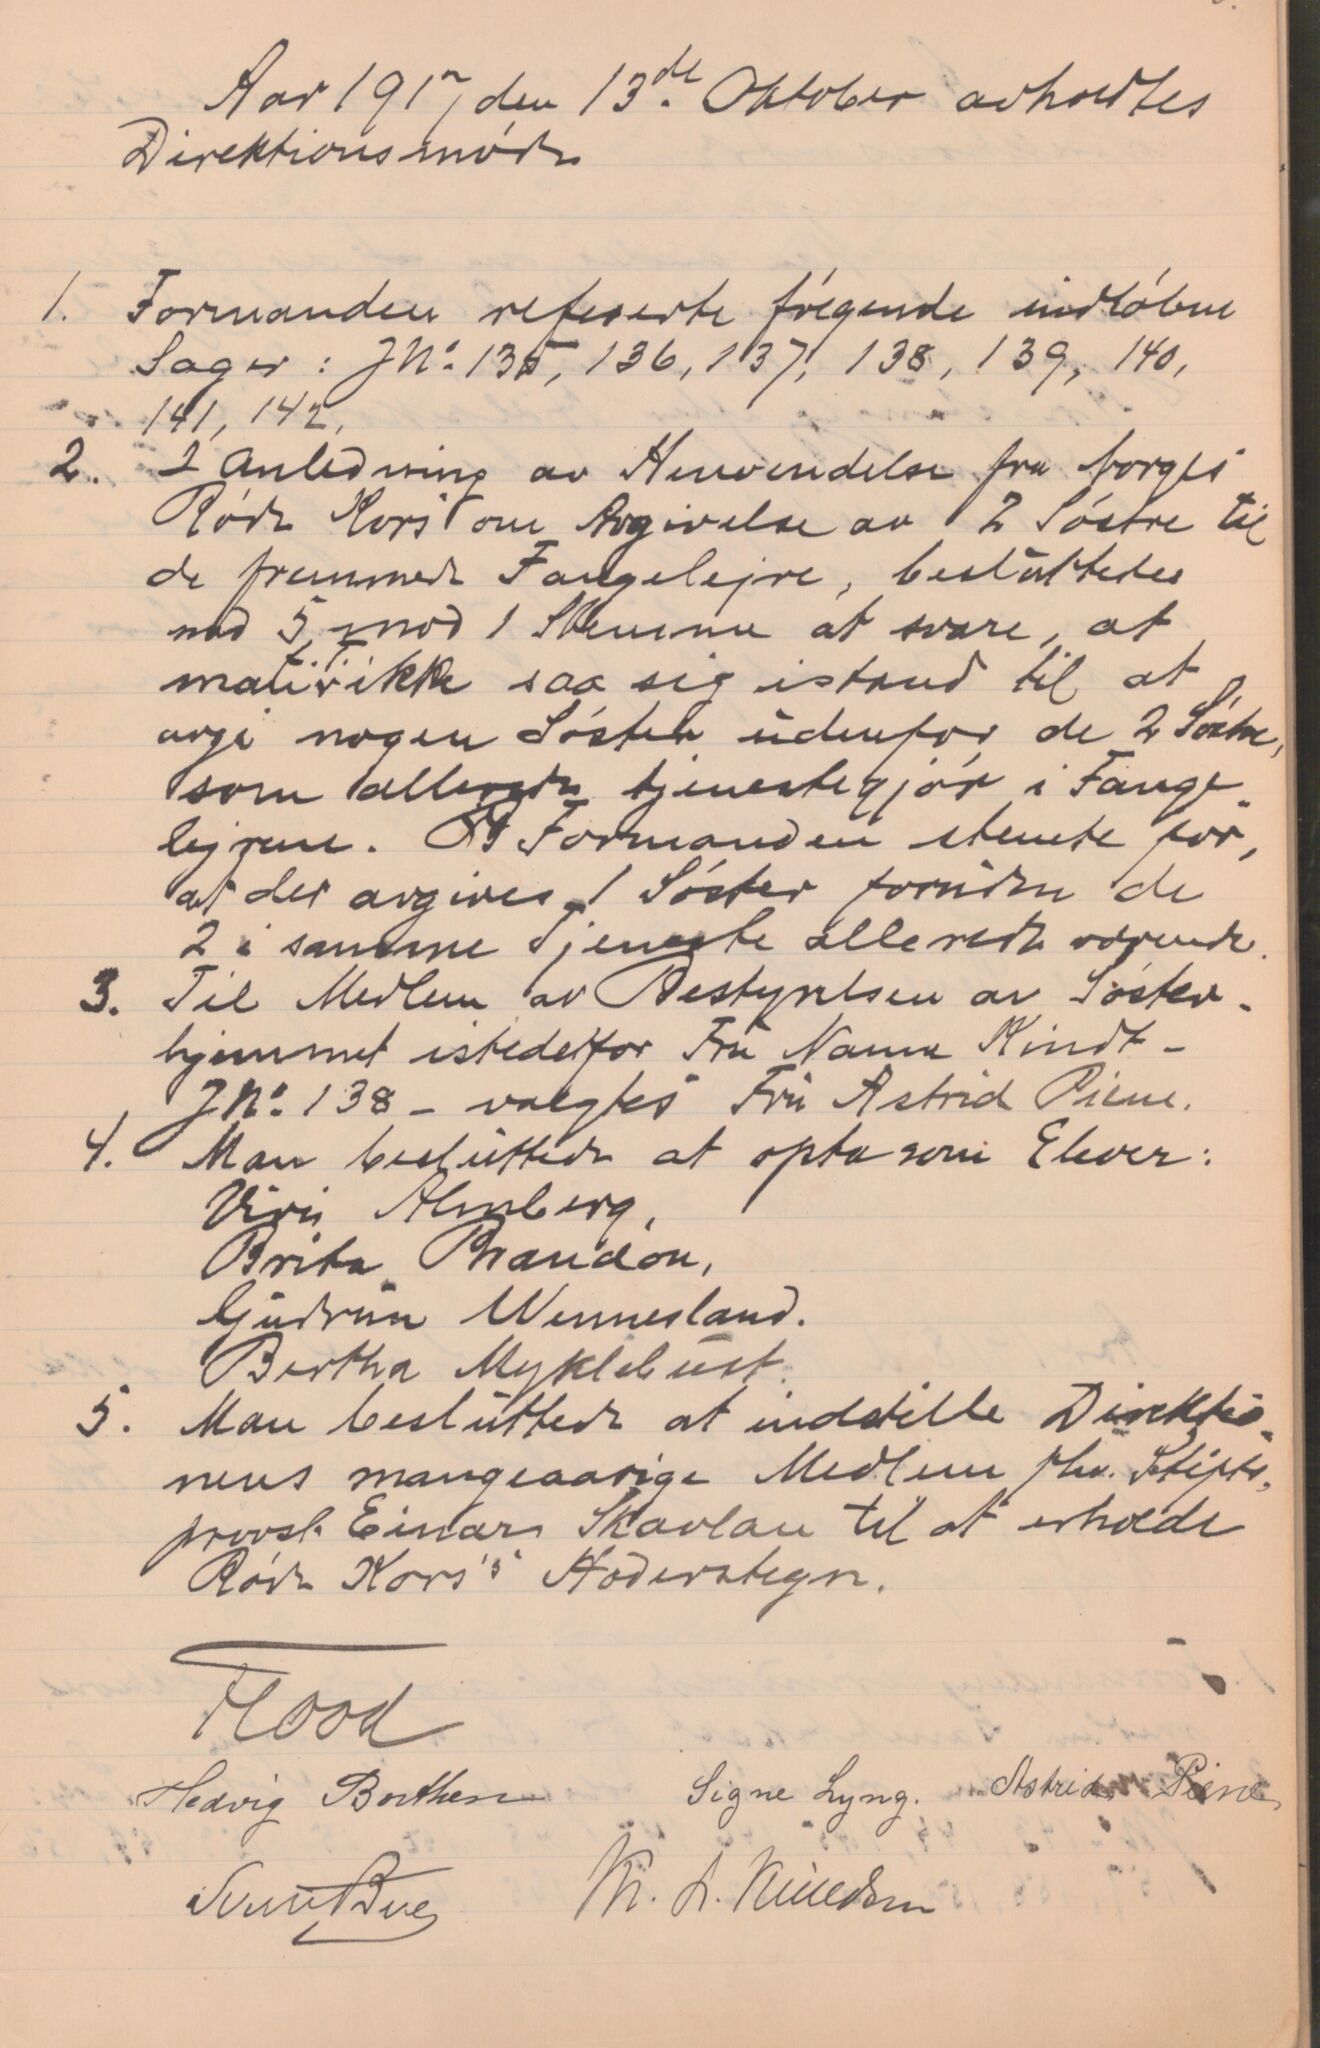 Aar 1917 den 13de Oktober avholdtes
Direktionsmøde
1. Formanden refererte følgende indløbne
Sager: JNo. 135, 136, 137, 138, 139, 140,
141, 142.
2. I Anledning av Henvendelse fra Norges
Røde Kors om Avgivelse av 2 Søstre til
de fremmede Fangelejre, besluttedes
med 5 mod 1 Stemme at svare, at
man ikke saa sig istand til at
avgi nogen Søster udenfor de 2 Søstre,
som allerede tjenestegjør i Fange-
lejrene. Formanden stemte for,
at der avgives 1 Søster foruden de
2 i samme Tjeneste allerede værende.
3. Til Medlem av Bestyrelsen av Søster-
hjemmet istedetfor Fru Nanna Kindt -
JNo. 138 - valgtes Fru Astrid Piene.
4. Man besluttede at opta som Elever:
Almberg,
Brita Brandon,
Gudrun Wennesland.
Bertha Myklebust.
5. Man besluttede at indstille Direktio-
nens mangeaarige Medlem fhv. Stifts-
provst Einar Skavlan til at erholde
Røde Kors's Hæderstegn.
Flood
Hedvig Borthen Signe Lyng. Astrid Piene
Bue Kr. A.